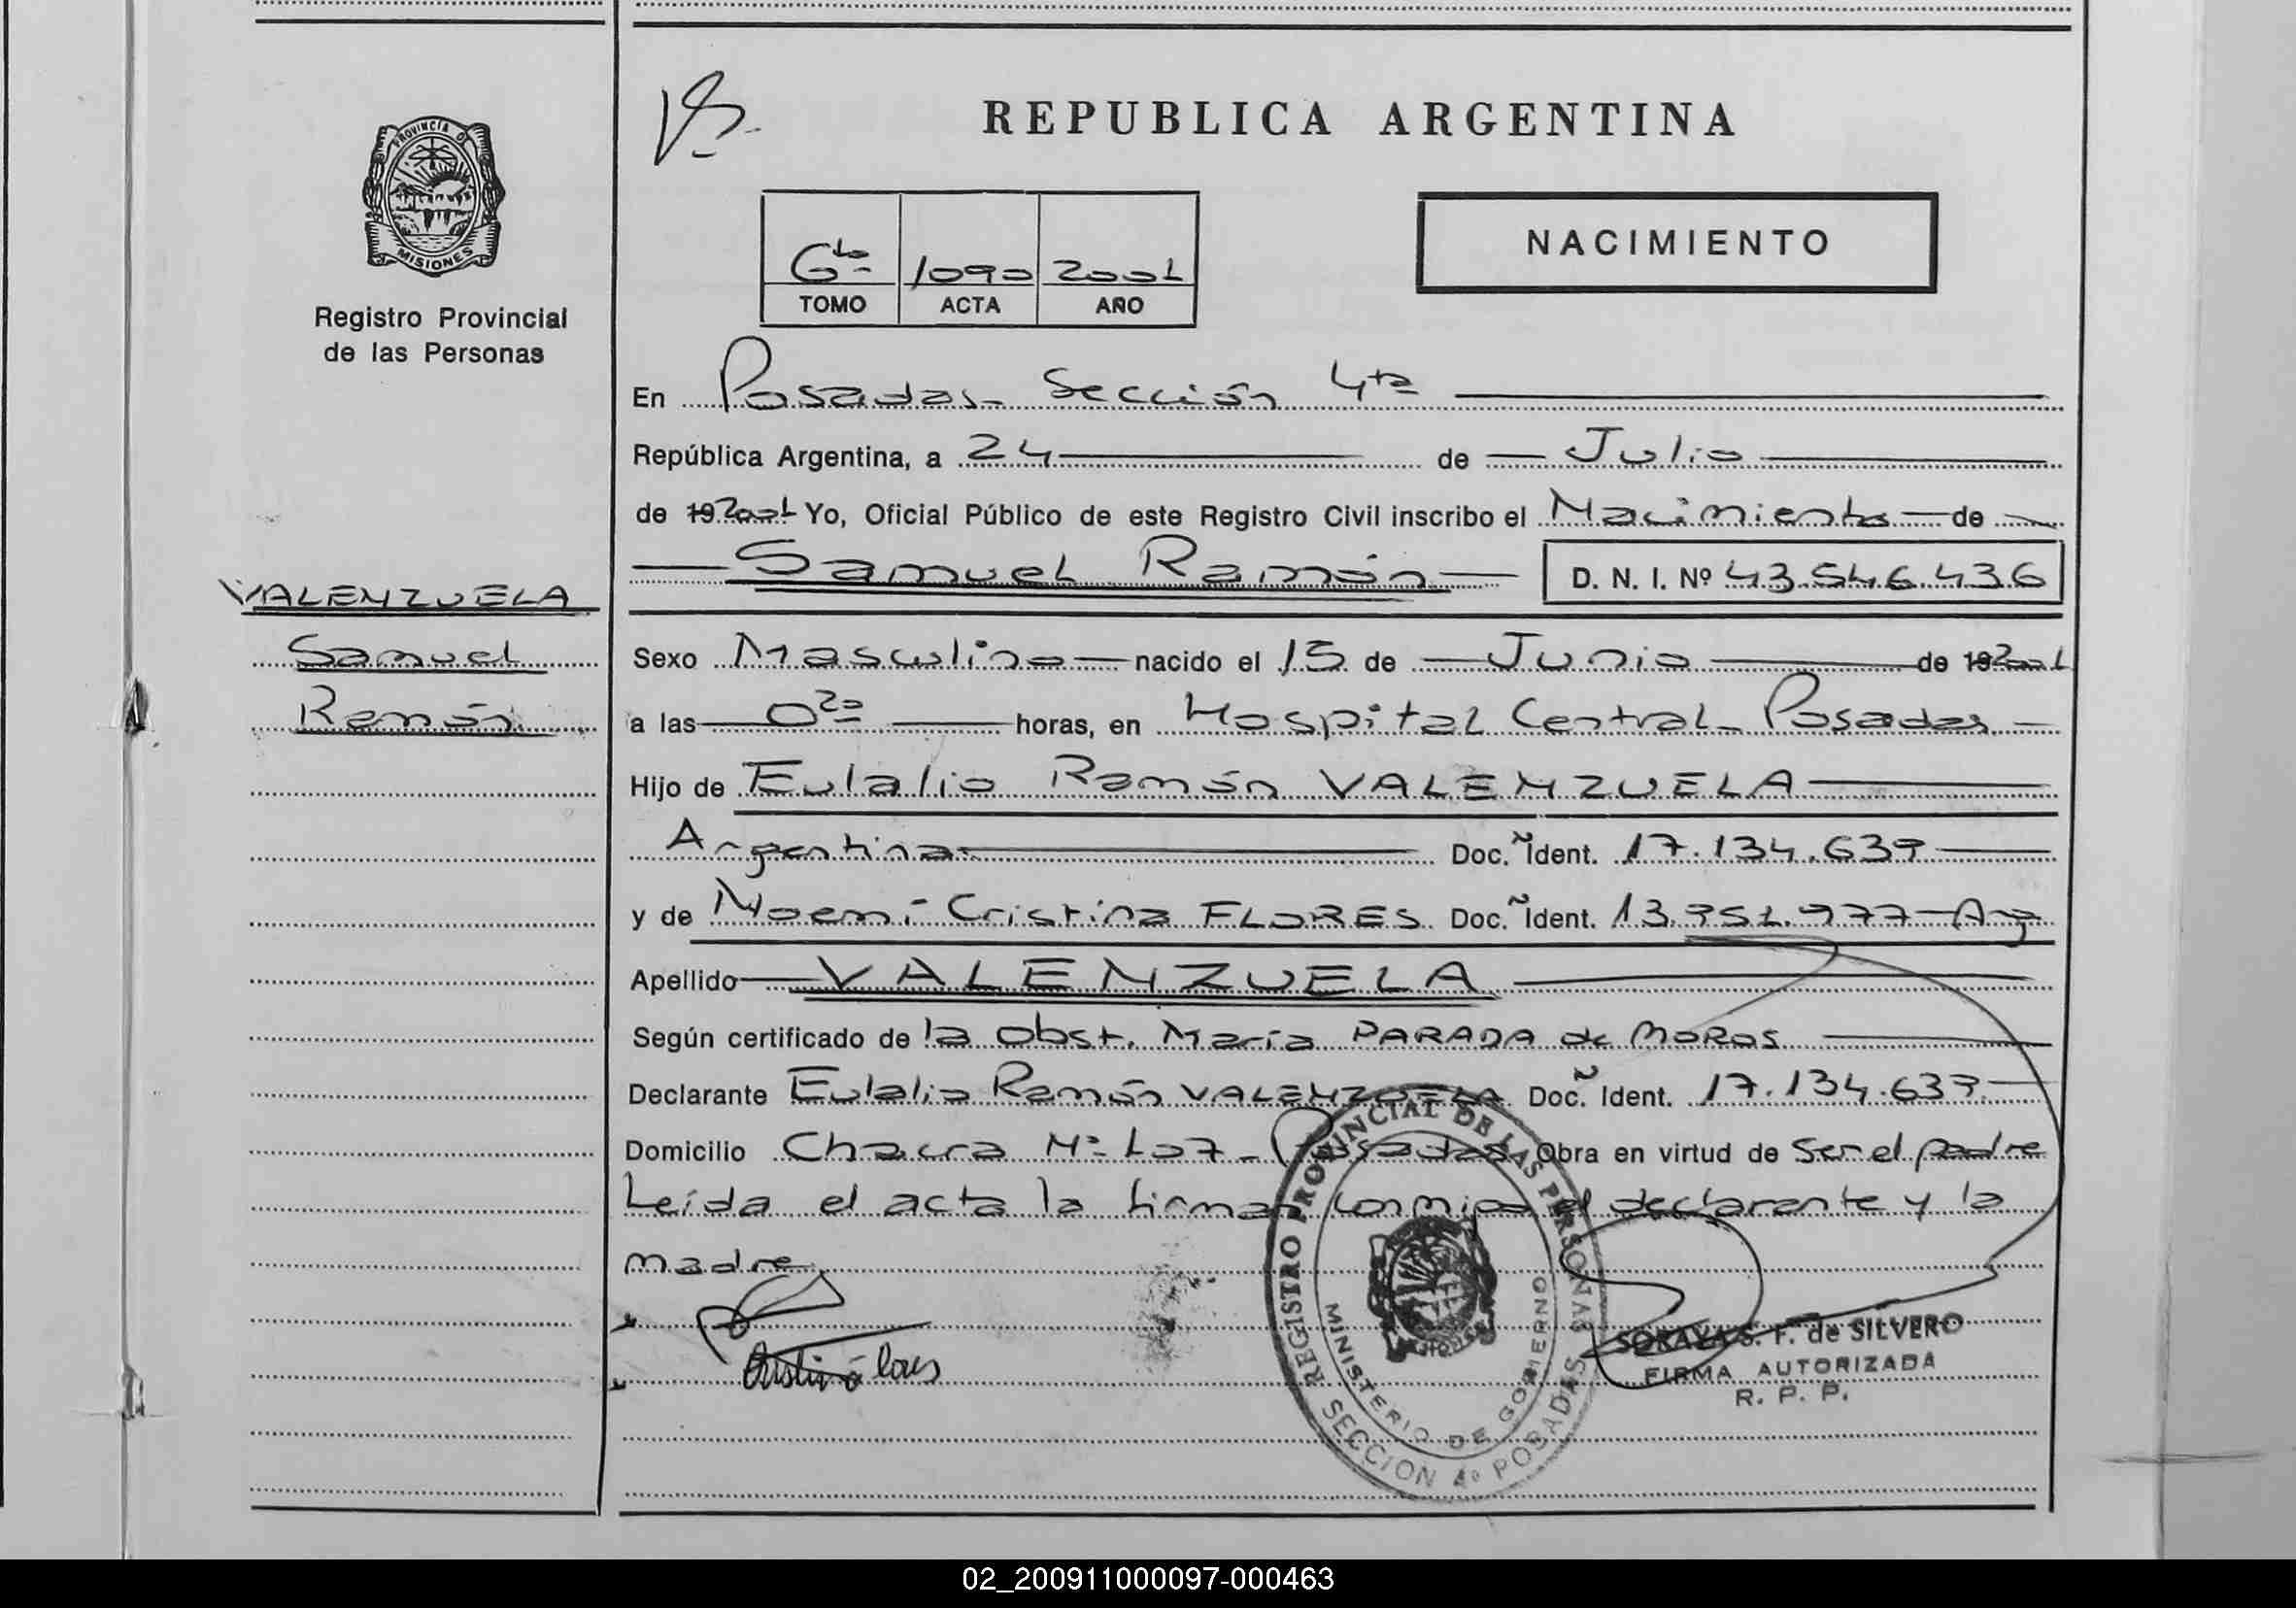 REPUBLICA ARGENTINA
PROVINCIA DE
MISIONES
Registro Provincial
de las Personas
NACIMIENTO
6to 1090 2001
TOMO ACTA AÑO
En Posadas - Sección 4ta
República Argentina, a 24 de Julio
de 19 2001 Yo, Oficial Público de este Registro Civil inscribo el Nacimiento de
Samuel Ramón D. N. I. Nº 43.546.436
VALENZUELA
Samuel
Ramón
Sexo Masculino nacido el 15 de Junio de 19 2001
a las 0 20 horas, en Hospital Central - Posadas
Hijo de Eulalio Ramón VALENZUELA
Argentina Doc. Ident. 17.134.639
y de Noemí Cristina FLORES Doc. Ident. 13.951.977 - Arg
Apellido VALENZUELA
Según certificado de la Obst. María PARADA de MOROS
Declarante Eulalio Ramón VALENZUELA Doc. Ident. 17.134.639
Domicilio Chacra Nº 107 - Posadas Obra en virtud de Ser el padre
Leída el acta la firman conmigo el declarante y la
madre
REGISTRO PROVINCIAL DE LAS PERSONAS
MINISTERIO DE GOBIERNO
MISIONES
SECCION 4ª POSADAS
SORAYA S. F. de SILVERO
FIRMA AUTORIZADA
R. P. P.
02_200911000097-000463